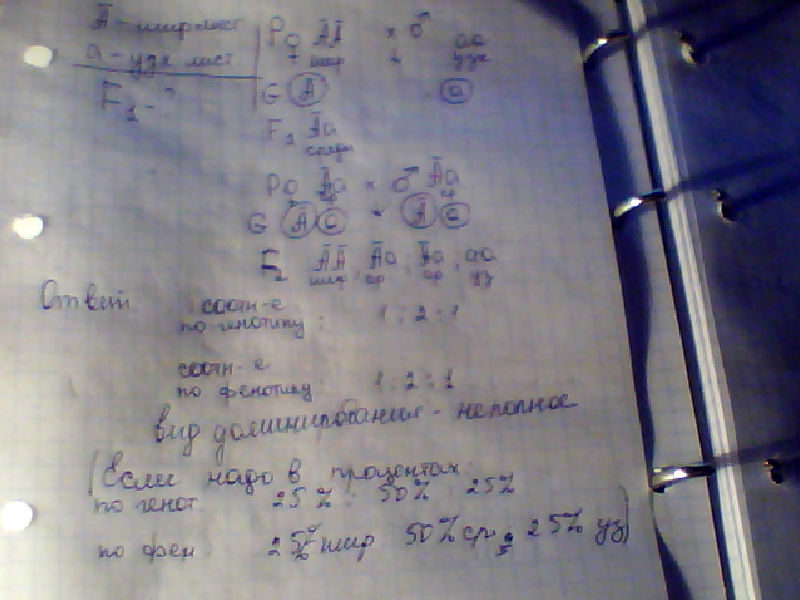 Ā - шир лист
a - узк лист
F₁ - ?
P ♀ ĀĀ × ♂ aa
шир узк
G Ā a
F₁ Āa
P ♀ Āa × ♂ Āa
ср ср
G Ā a Ā a
F₂ ĀĀ : Āa : Āa : aa
шир ср ср уз
Ответ
соотн-е
по генотипу : 1 : 2 : 1
соотн-е
по фенотипу : 1 : 2 : 1
вид доминирования - неполное
(Если надо в процентах:
по генот. 25% : 50% : 25%
по фен : 25% шир 50% ср : 25% уз)